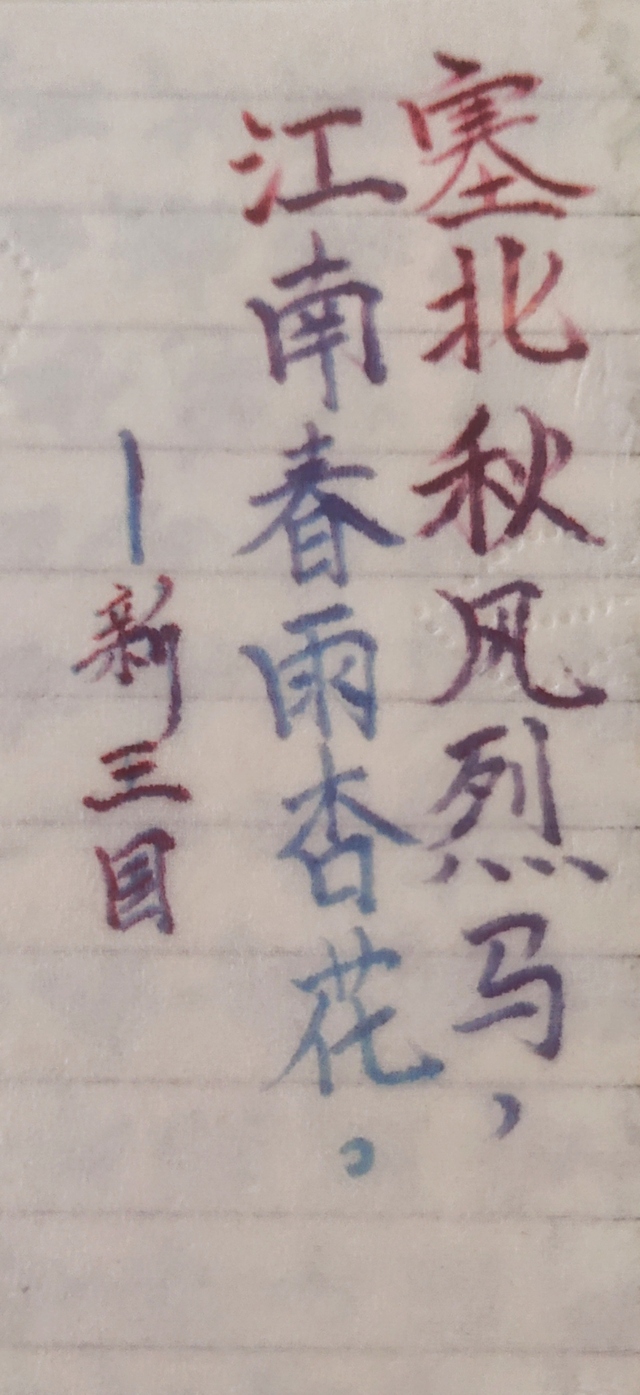 塞北秋风烈马，
江南春雨杏花。
—新三目